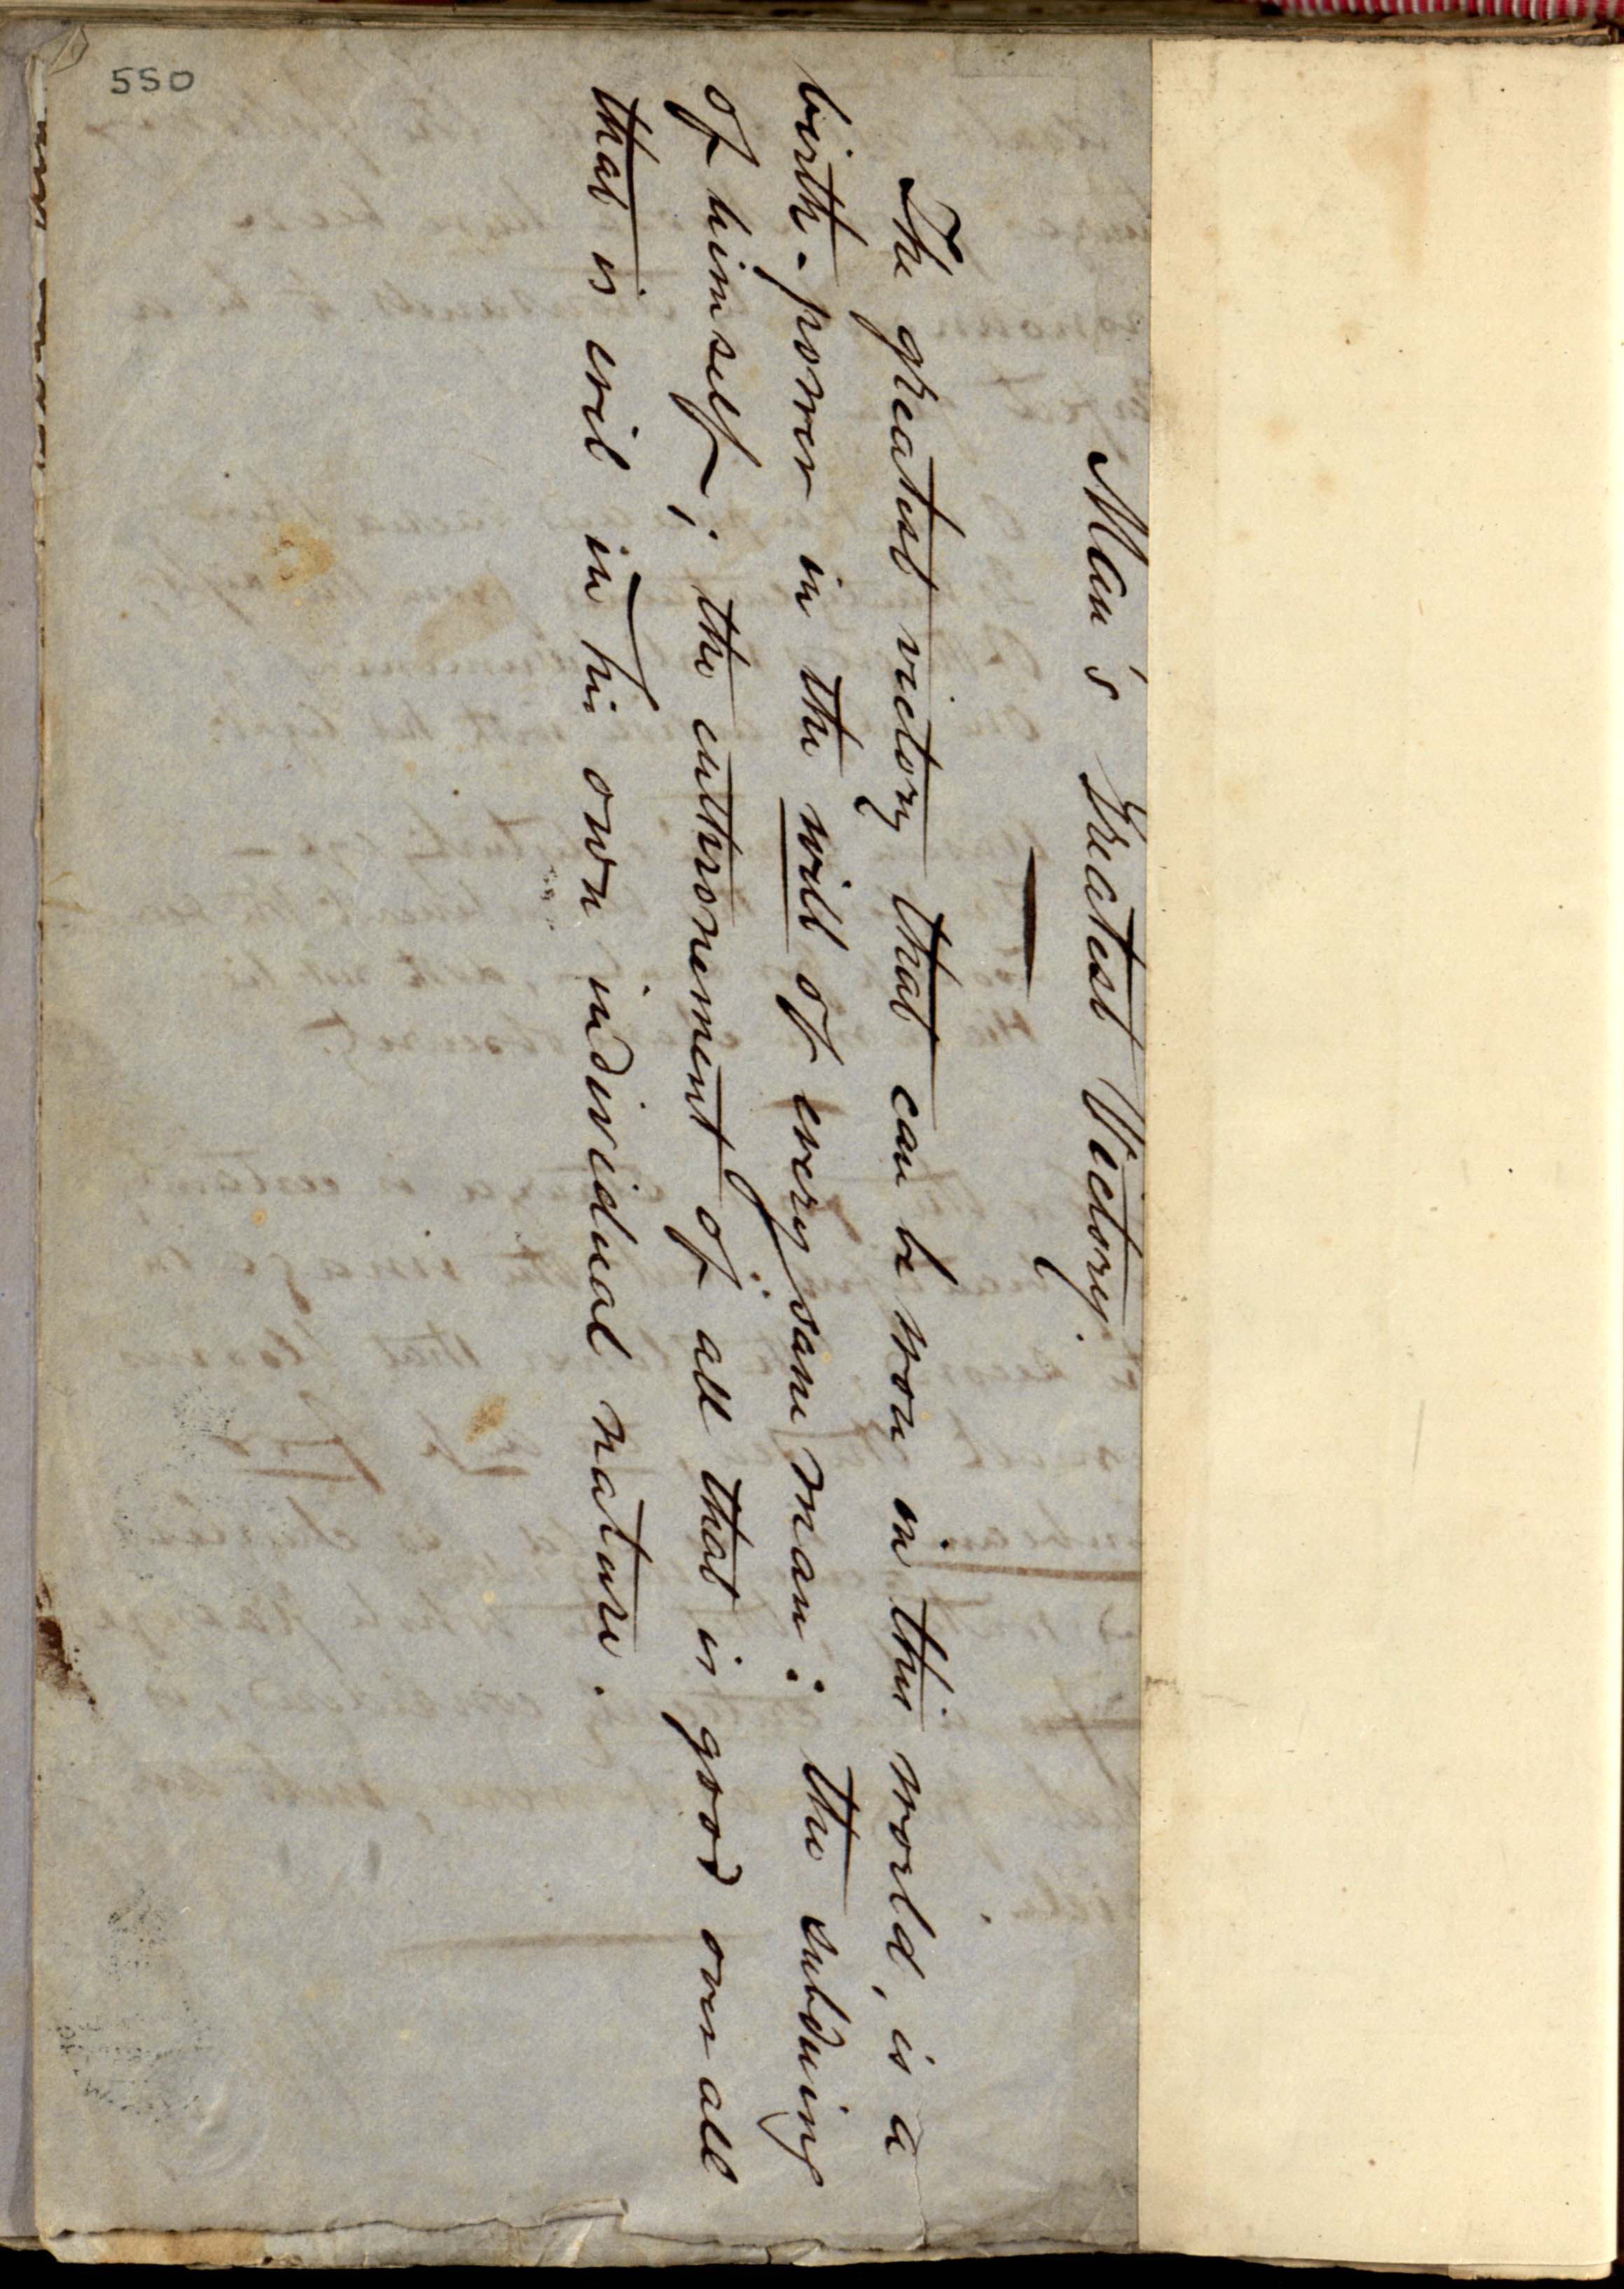 550
Man's Greatest Victory.
The greatest victory that can be won in this world, is a
birth-power in the will of every sane man: the subduing
of himself; the enthronement of all that is good over all
that is evil in his own individual nature.